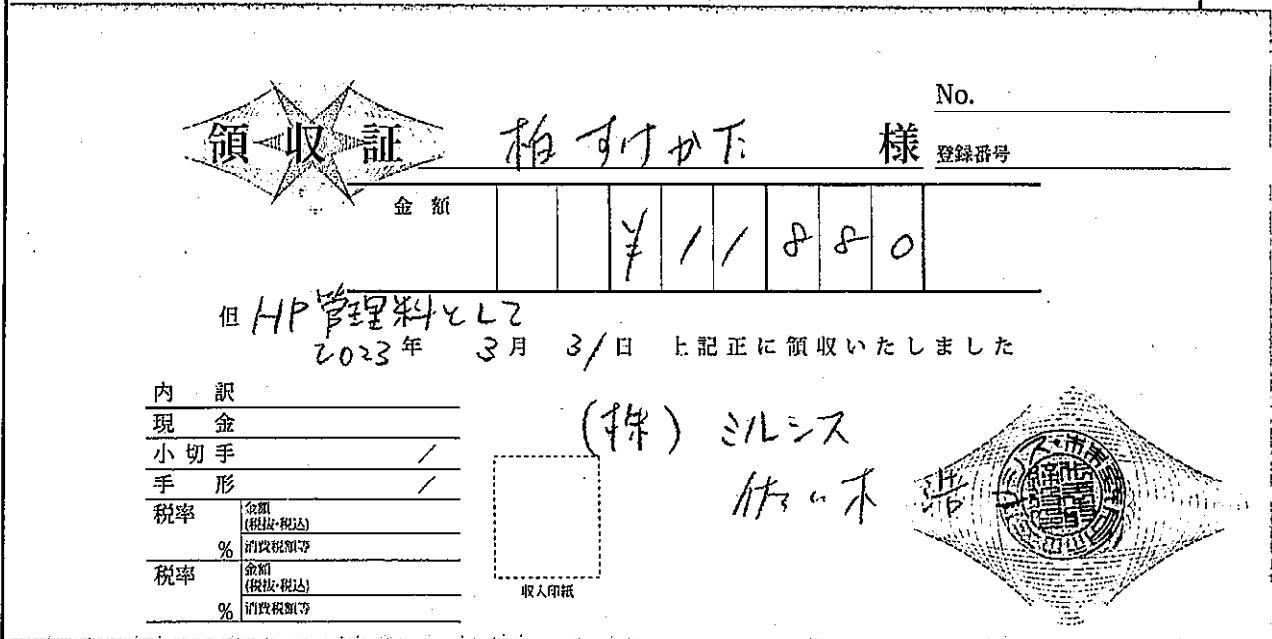 No.
領収証 柏すけかた 様 登録番号
金額 ¥11880
但 HP管理料として
2023年 3月 31日 上記正に領収いたしました
内訳
現金
小切手 /
手形 /
税率 % 金額(税抜・税込) 消費税額等
税率 % 金額(税抜・税込) 消費税額等
収入印紙
(株)ミルシス
佐々木 浩